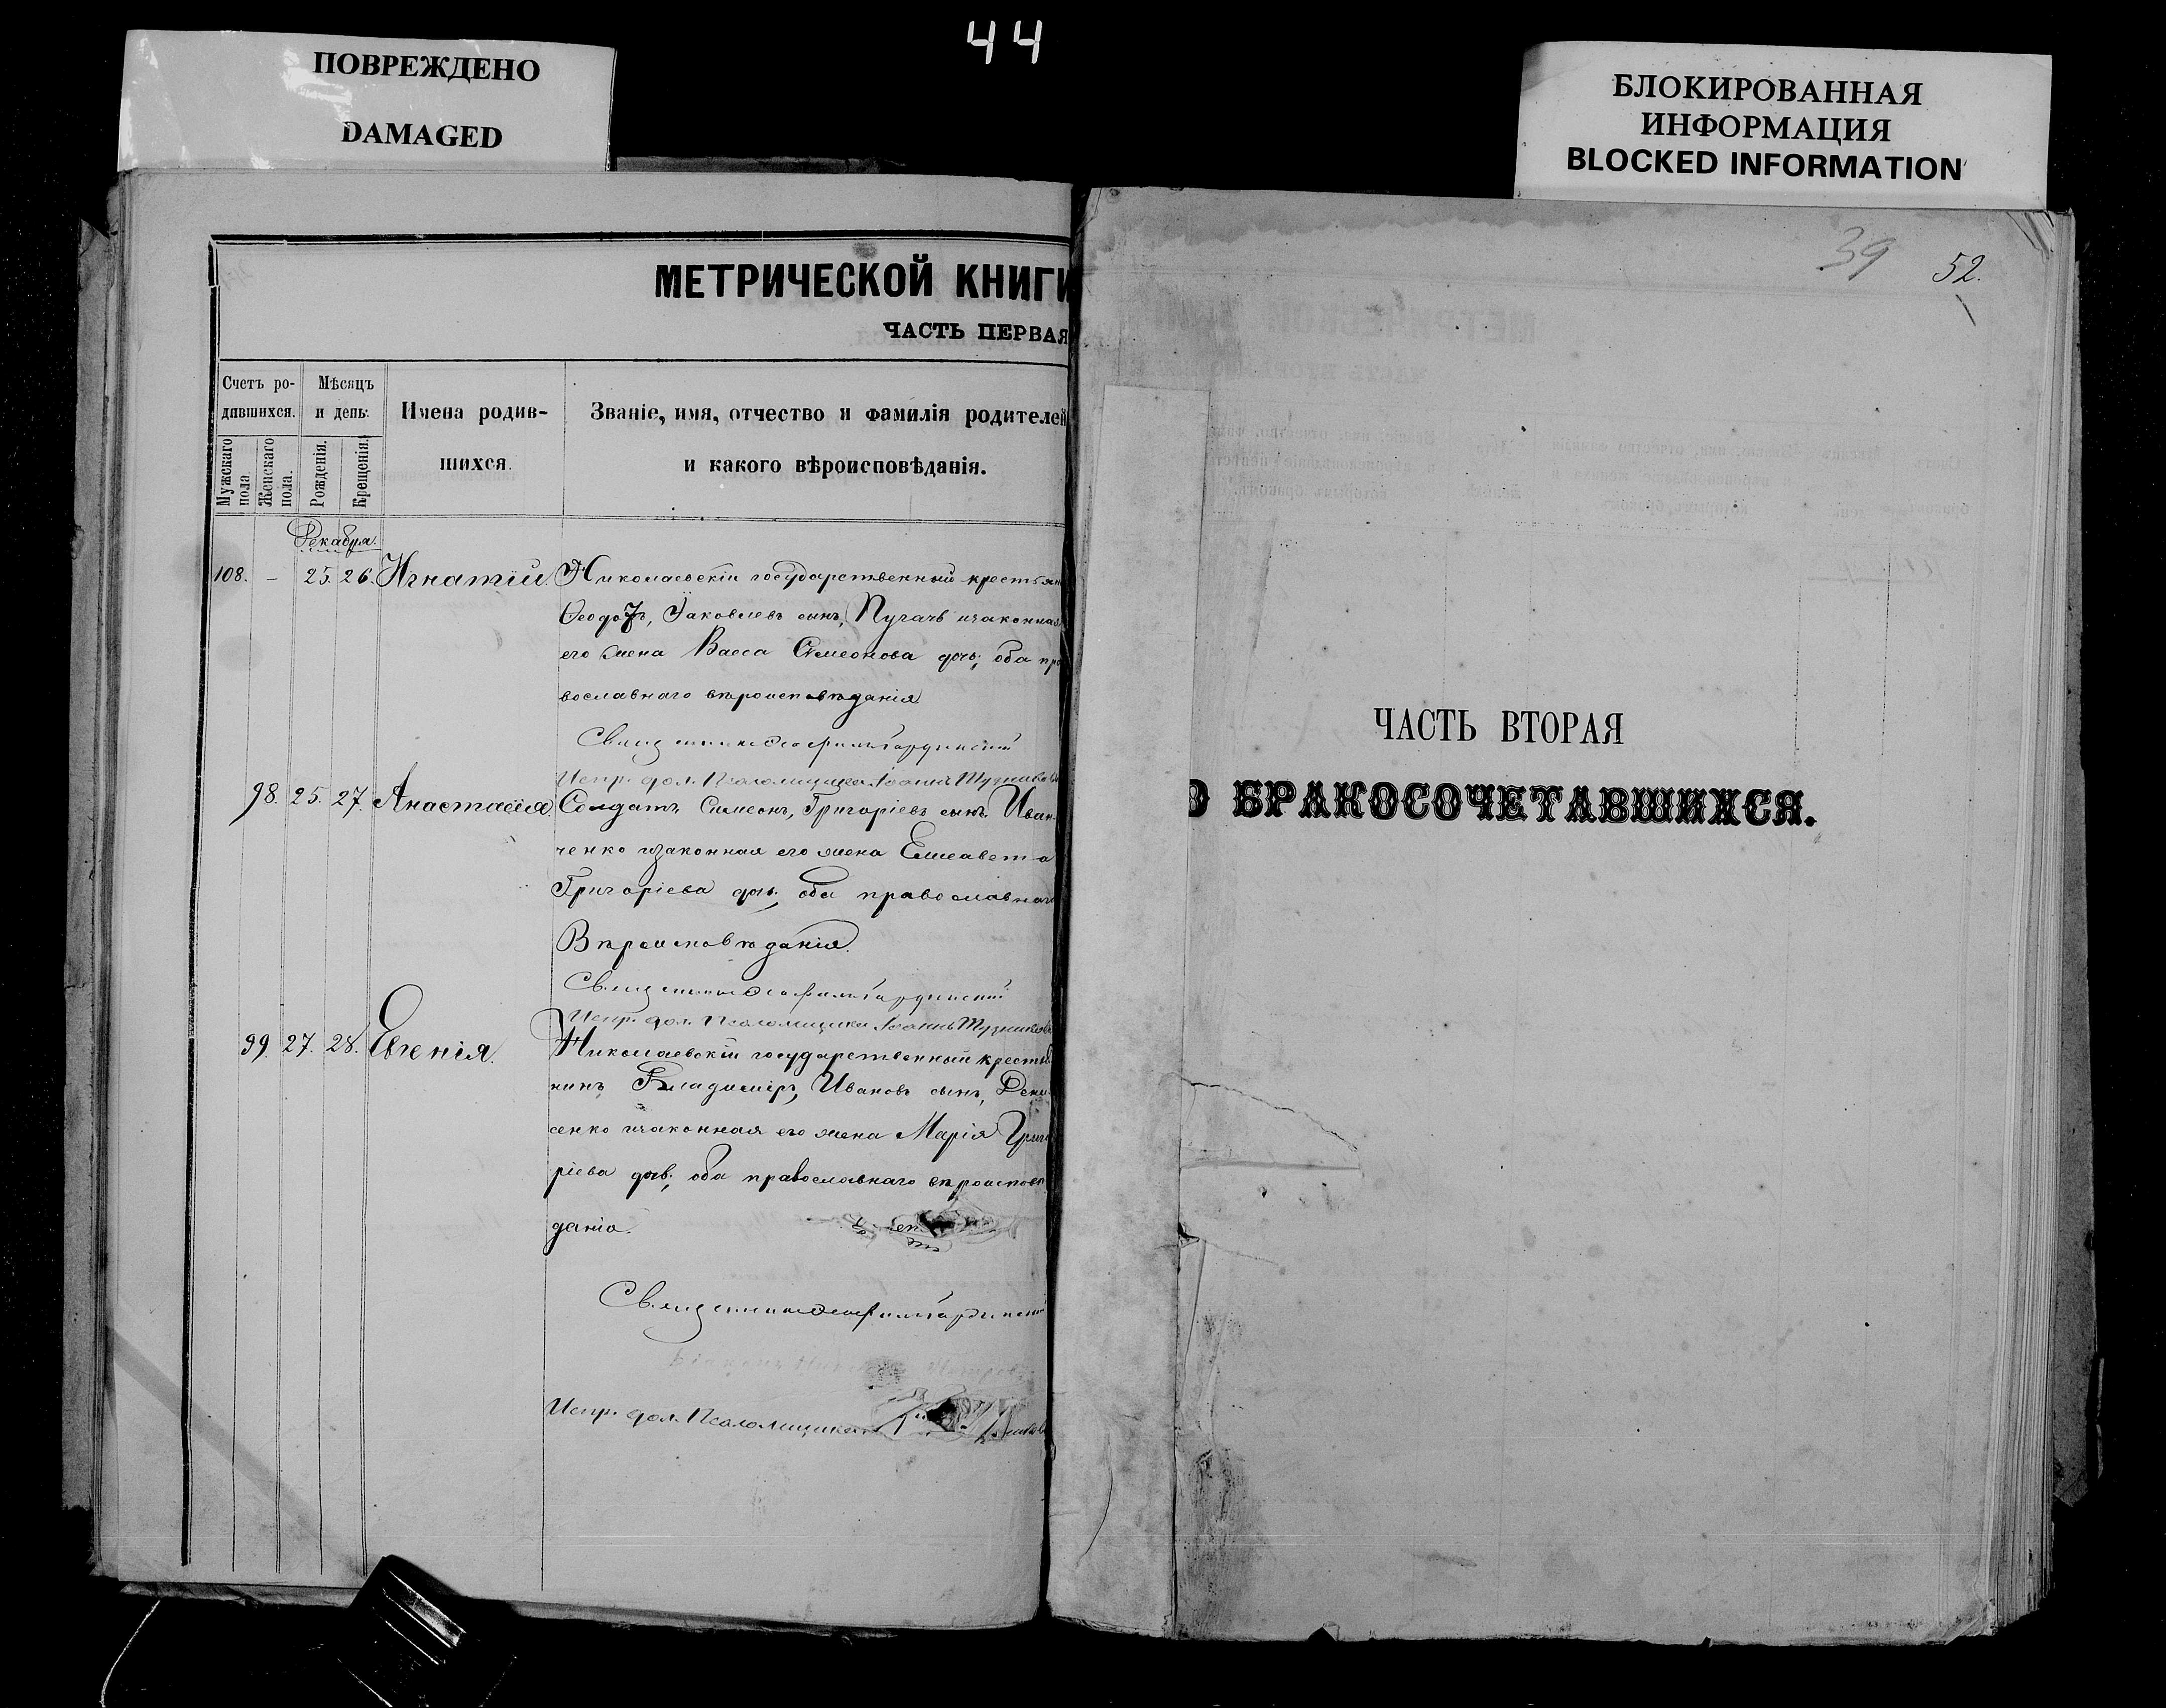 44
ПОВРЕЖДЕНО
DAMAGED
БЛОКИРОВАННАЯ
ИНФОРМАЦИЯ
BLOCKED INFORMATION
МЕТРИЧЕСКОЙ КНИГИ
ЧАСТЬ ПЕРВАЯ
Счетъ ро-
дившихся.
Мужскаго пола
Женскаго пола.
Мѣсяцъ
и день.
Рожденія.
Крещенія.
Имена родив-
шихся.
Званіе, имя, отчество и фамилія родителей
и какого вѣроисповѣданія.
Декабря.
108. – 25. 26. Игнатій. Николаевскій государственный крестьян
Ѳеодотъ, Яковлевъ сынъ, Пугачъ изаконная
его жена Васса Симеонова дочь; оба пра
вославнаго вѣроисповѣданія
Священник
Испр. дол. Псаломщика Іоаннъ
98. 25. 27. Анастасія. Солдатъ Симеонъ, Григоріевъ сынъ, Иван
ченко изаконная его жена Елисавета
Григоріева дочь; оба православнаго
Вѣроисповѣданія.
Священник
Испр. дол. Псаломщика Іоаннъ
99. 27. 28. Евгенія. Николаевскій государственный крестья
нинъ Владиміръ, Ивановъ сынъ, Дени
сенко изаконная его жена Марія Григо
ріева дочь; оба православнаго вѣроисповѣ
данія.
Священник
Испр. дол. Псаломщика
39 52.
ЧАСТЬ ВТОРАЯ
О БРАКОСОЧЕТАВШИХСЯ.